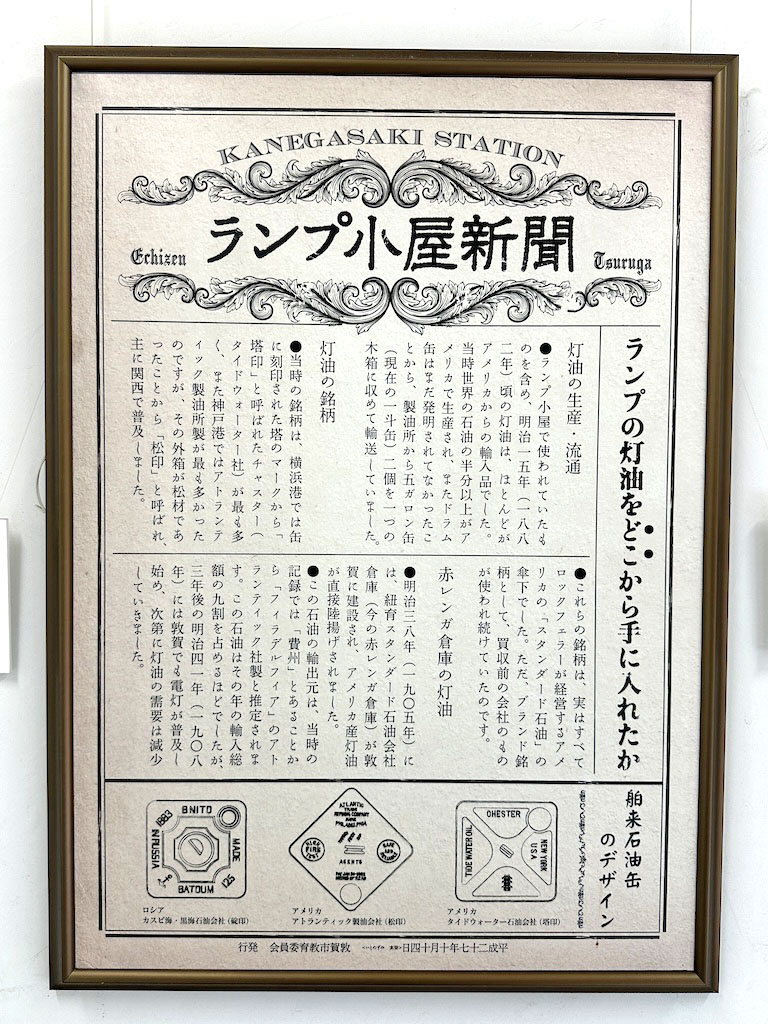 KANEGASAKI STATION
Echizen
ランプ小屋新聞
Tsuruga
ランプの灯油をどこから手に入れたか
灯油の生産・流通
●ランプ小屋で使われていたも
のを含め、明治一五年（一八八
二年）頃の灯油は、ほとんどが
アメリカからの輸入品でした。
当時世界の石油の半分以上がア
メリカで生産され、まだドラム
缶はまだ発明されてなかったこ
とから、製油所から五ガロン缶
（現在の一斗缶）二個を一つの
木箱に収めて輸送していました。
灯油の銘柄
●当時の銘柄は、横浜港では缶
に刻印された塔のマークから「
塔印」と呼ばれたチャスター（
タイドウォーター社）が最も多
く、また神戸港ではアトランテ
ィック製油所製が最も多かった
のですが、その外箱が松材であ
ったことから「松印」と呼ばれ、
主に関西で普及しました。
●これらの銘柄は、実はすべて
ロックフェラーが経営するアメ
リカの「スタンダード石油」の
傘下でした。ただ、ブランド銘
柄として、買収前の会社のもの
が使われ続けていたのです。
赤レンガ倉庫の灯油
●明治三八年（一九〇五年）に
は、紐育スタンダード石油会社
倉庫（今の赤レンガ倉庫）が敦
賀に建設され、アメリカ産灯油
が直接陸揚げされました。
●この石油の輸出元は、当時の
記録では「費州」とあることか
ら「フィラデルフィア」のアト
ランティック社製と推定されま
す。この石油はその年の輸入総
額の九割を占めるほどでしたが、
三年後の明治四一年（一九〇八
年）には敦賀でも電灯が普及し
始め、次第に灯油の需要は減少
していきました。
舶来石油缶
のデザイン
CHESTER
NEW YORK
USA
TIDE WATER OIL
アメリカ
タイドウォーター石油会社（塔印）
ATLANTIC
REFINING COMPANY
PHILADELPHIA
HIGH
FIRE
TEST
AGENTS
アメリカ
アトランティック製油会社（松印）
BNITO
1883
MADE
IN RUSSIA
BATOUM
125
ロシア
カスピ海・黒海石油会社（錠印）
平成二十七年十月十四日
敦賀市教育委員会 発行